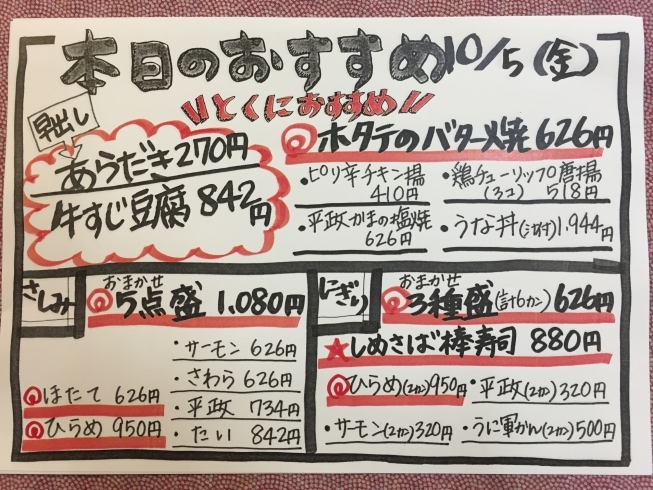 本日のおすすめ 10/5(金)
"とくにおすすめ"
早出し
あらだき 270円
牛すじ豆腐 842円
◎ホタテのバター焼 626円
・ピリ辛チキン揚 410円
・鶏チューリップ唐揚(3コ) 518円
・平政かまの塩焼 626円
・うな丼(汁付) 1,944円
さしみ
◎おまかせ5点盛 1,080円
・サーモン 626円
・さわら 626円
◎ほたて 626円
・平政 734円
◎ひらめ 950円
・たい 842円
にぎり
◎おまかせ3種盛(計6カン) 626円
★しめさば棒寿司 880円
◎ひらめ(2カン) 950円
・平政(2カン) 320円
・サーモン(2カン) 320円
・うに軍かん(2カン) 500円